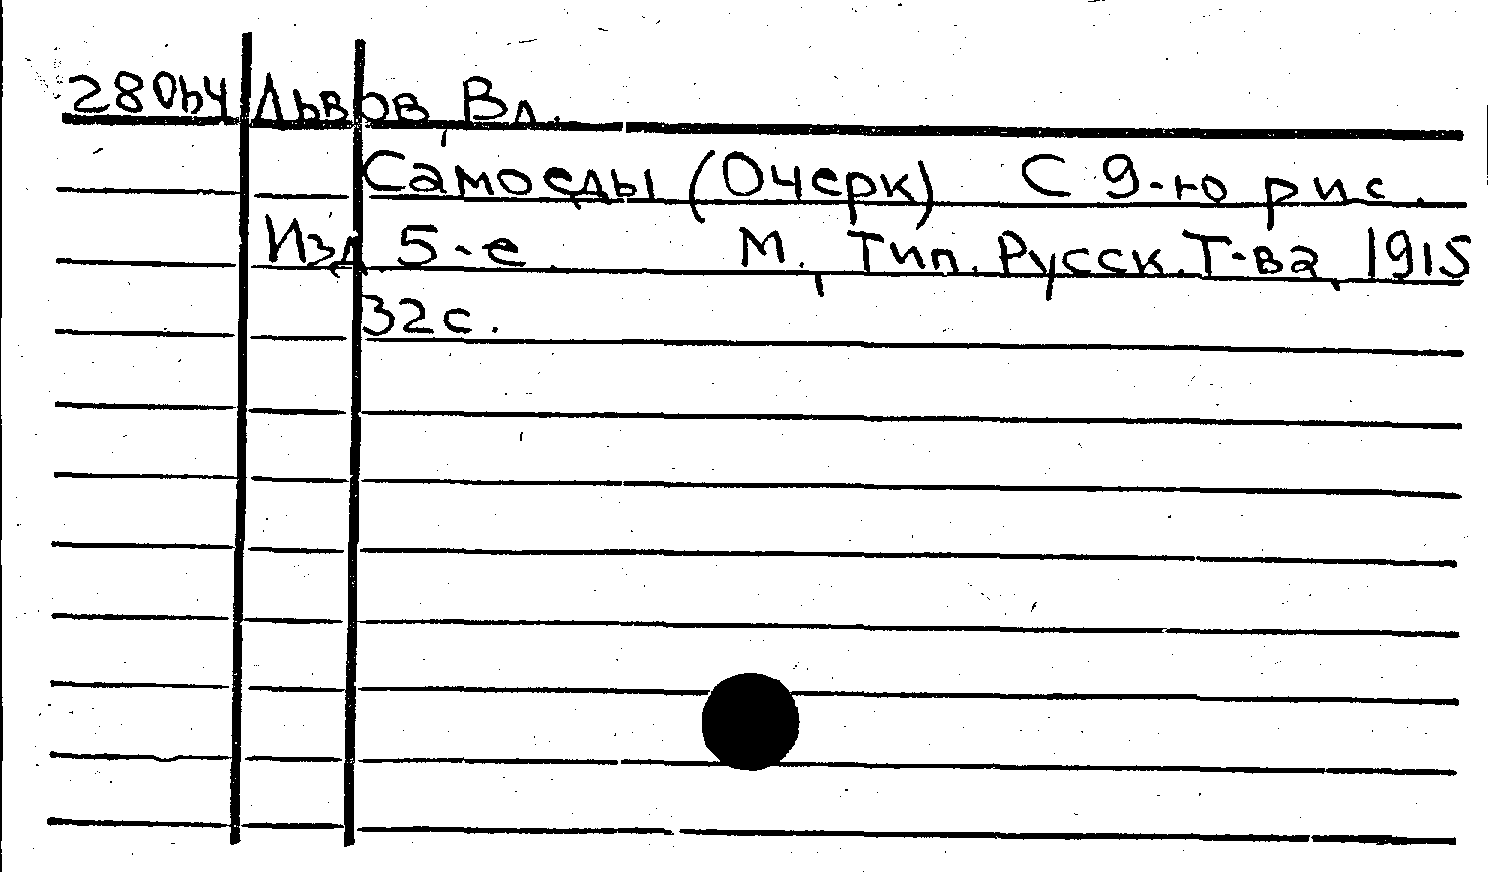 28064 Львов, Вл.
Самоеды (Очерк) С 9-ю рис.
Изд. 5-е. М., Тип. Русск. Т-ва, 1915
32 с.